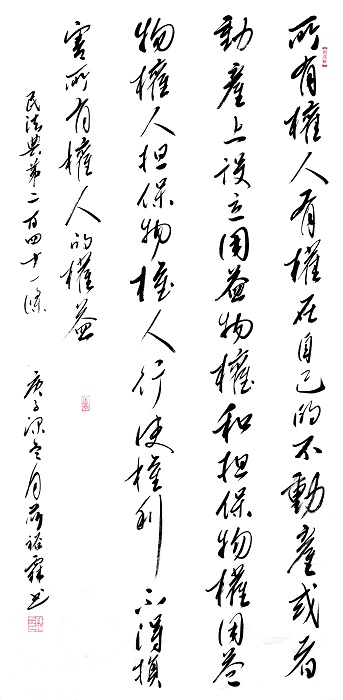 所有權人有權在自己的不動產或者
動產上设立用益物權和担保物權用益
物權人担保物權人行使權利不得損
害所有權人的權益
民法典第二百四十一條
庚子深冬月裕霖书